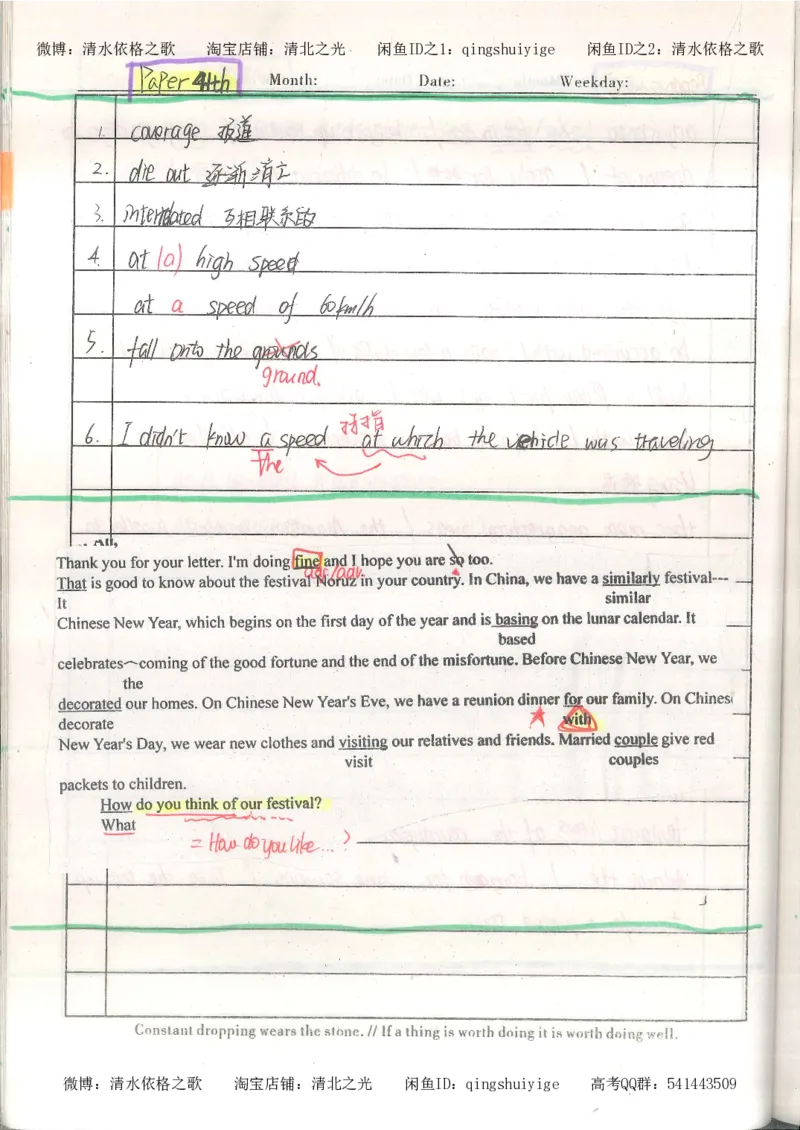 微博：清水依格之歌 淘宝店铺：清北之光 闲鱼ID之1：qingshuiyige 闲鱼ID之2：清水依格之歌
Paper 4th Month: Date: Weekday:
1. coverage 报道
2. die out 逐渐消亡
3. 互相联系的
4. at (a) high speed
at a speed of 60km/h
5. fall onto the grounds
ground.
6. I didn't know a speed at which the vehicle was traveling
the
All,
Thank you for your letter. I'm doing fine and I hope you are so too.
adj/adv.
That is good to know about the festival Noruz in your country. In China, we have a similarly festival---
It similar
Chinese New Year, which begins on the first day of the year and is basing on the lunar calendar. It
based
celebrates︿coming of the good fortune and the end of the misfortune. Before Chinese New Year, we
the
decorated our homes. On Chinese New Year's Eve, we have a reunion dinner for our family. On Chinese
decorate with
New Year's Day, we wear new clothes and visiting our relatives and friends. Married couple give red
visit couples
packets to children.
How do you think of our festival?
What
= How do you like...?
Constant dropping wears the stone. // If a thing is worth doing it is worth doing well.
微博：清水依格之歌 淘宝店铺：清北之光 闲鱼ID：qingshuiyige 高考QQ群：541443509